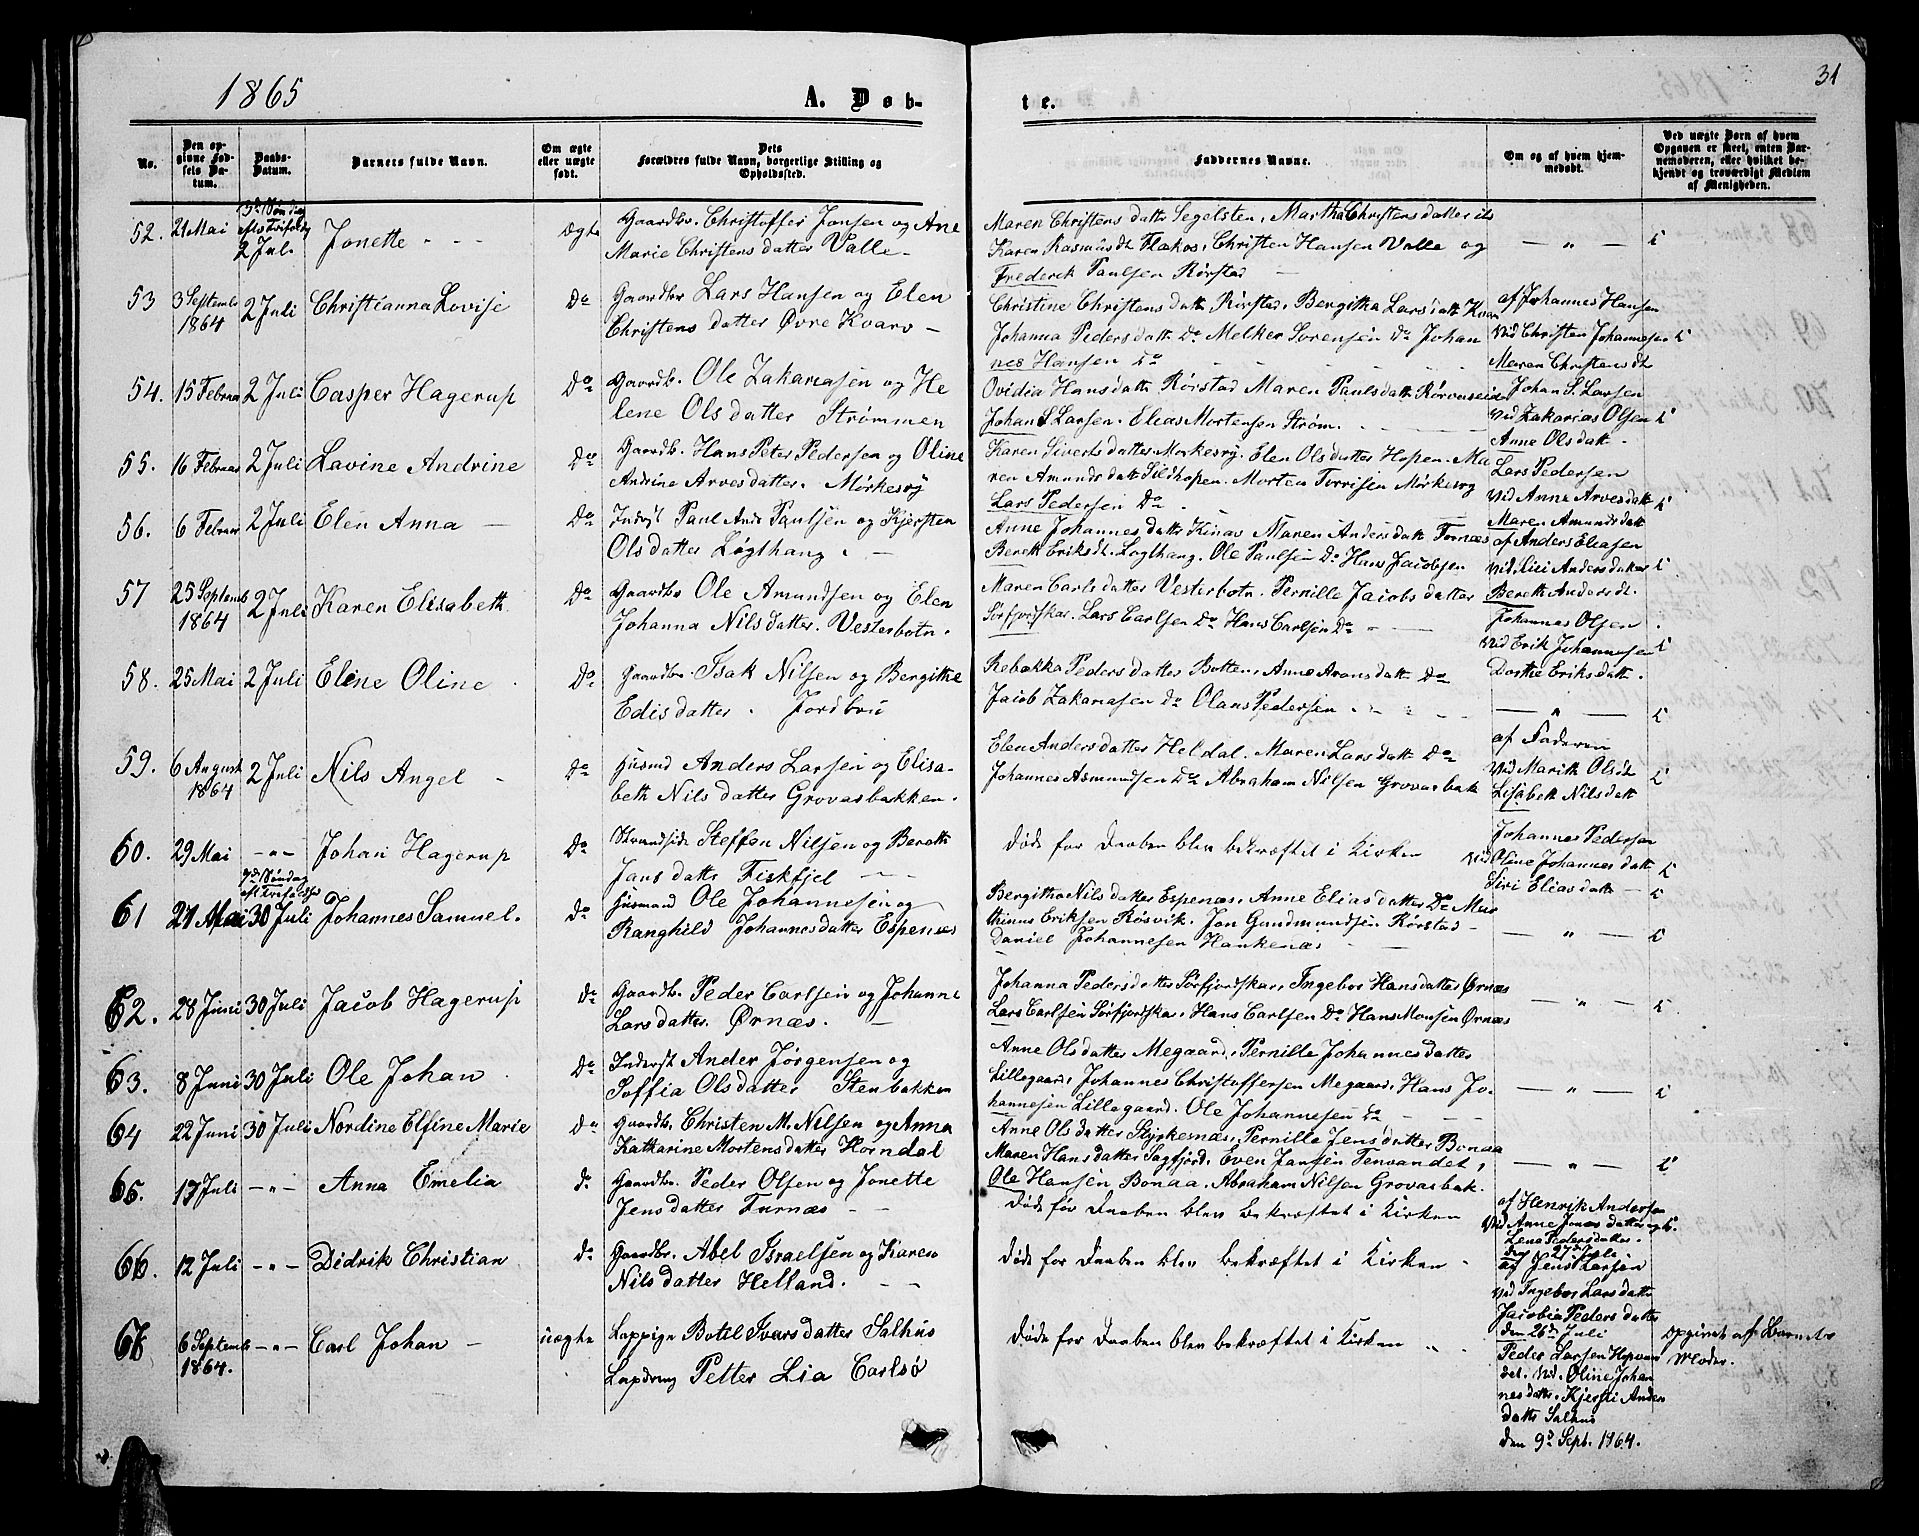 1865
A. Døb-
te.
31
No.
Den op-
givne Fød-
sels Da-
tum.
Daabs-
Datum.
Barnets fulde Navn.
Om ægte
eller uægte
født.
Dets
Forældres fulde Navn, borgerlige Stilling og
Opholdssted.
Faddernes Navne.
Om og af hvem hjem-
medøbt.
Ved uægte Børn af hvem
Opgaven er skeet, enten Bar-
nemoderen, eller hvilket be-
kjendt og troværdigt Medlem
af Menigheden.
52. 21 Mai 2 Juli Jonette Ægte Gaardbr. Christoffer Jonsen og Ane
Marie Christensdatter Valle
Maren Christensdatter Segelsten, Martha Christensdatter
Karen Rasmusdt Flakos, Christen Hansen Valle og
Frederik Paulsen Rørstad
— " —
53 3 Septemb 1864 2 Juli Christianna Lovise Do Gaardbr Lars Hansen og Elen
Christensdatter Øvre Kvarv
Christine Christensdatt Rørstad, Bergitha Larsdatt Kvarv
Johanna Pedersdatt Do Melker Sørensen Do Johan
nes Hansen Do
af Johannes Hansen
Vid Christen Johannesen
Maren Christensdt
54. 15 Februar 2 Juli Casper Hagerup Do Gaardb. Ole Zakariasen og He
lene Olsdatter Strømmen
Ovidia Hansdatt Rørstad Maren Paulsdatt Rørvaseid
Johan S Larsen. Elias Mortensen Strøm.
Johan S. Larsen
Vid Zakarias Olsen
Anne Olsdatt
55. 16 Februar 2 Juli Lavine Andrine Do Gaardb. Hans Peter Pedersen og Oline
Andrine Arvesdatter. Mørkesvig
Karen Sivertsdatter Mørkesvig. Elen Olsdatter Hopen. Ma
ren Amundsdatt Sildhopen. Morten Torrisen Mørkesvig
Lars Pedersen Do
Lars Pedersen
Vid Anne Arvesdatt
Maren Amundsdatt
56. 6 Februar 2 Juli Elen Anna Do Indsyt Paul Ands Paulsen og Kjersten
Olsdatter Løgthaug
Anne Johannesdatter Kinas Maren Andersdatt Tornæs
Berett Eriksdt. Løgthaug. Ole Paulsen Do Hans Jacobsen
af Anders Eliasen
Vid Siri Andersdatter
Berett Andersdt.
57 25 Septemb 1864 2 Juli Karen Elisabeth Do Gaardb. Ole Amundsen og Elen
Johanna Nilsdatter. Vesterbotn.
Maren Carlsdatter Vesterbotn. Pernille Jacobsdatter
Sørfjordskar. Lars Carlsen Do Hans Carlsen Do
Johannes Olsen
Vid Erik Johannesen
Dorthe Eriksdatt.
58. 25 Mai 2 Juli Eline Oline Do Gaardbr. Isak Nilsen og Bergitte
Edisdatter. Fordbru
Rebækka Pedersdatter Botten, Anne Aronsdatt Do
Jacob Zakariasen Do Olans Pedersen
— " —
59. 6 August 1864 2 Juli Nils Angel Do Husmd Anders Larsen og Elisa-
beth Nilsdatter Grovasbakken.
Elen Andersdatter Heldal. Maren Larsdatt Do
Johannes Asmundsen Do Abraham Nilsen Grovasbak
af Faderen
Vid Marith Olsdt
Lisabeth Nilsdatt
60. 29 Mai —"— Johan Hagerup Do Strandsid Steffen Nilsen og Berett
Jansdatt Fiskfjel
Døde før Daaben blev bekræftet i Kirken
Johannes Pedersen
Vid Oline Johannesdatt
Siri Eliasdatt
61 21 Mai 30 Juli Johannes Samuel. Do Husmand Ole Johannesen og
Ranghild Johannesdatter Espenæs
Bergitha Nilsdatter Espenæs, Anne Eliasdatter Do Mar
thinus Eriksen Røsvik. Jon Gundmundsen Rørstad
Daniel Johannesen Hankenæs
— " —
62. 28 Juni 30 Juli Jacob Hagerup Do Gaardb. Peder Carlsen og Johanne
Larsdatter. Ørnæs.
Johanna Pedersdatter Sørfjordskar, Ingebor Hansdatter Ørnæs
Lars Carlsen Sørfjordskar, Hans Carlsen Do Hans Monsen Ørnæs
— " —
63. 8 Juni 30 Juli Ole Johan Do Inderst Ander Jørgensen og
Soffia Olsdatter Stenbakken
Anne Olsdatter Megaard, Pernille Johannesdatter
Lillegaard, Johannes Christoffersen Megaard, Hans Jo-
hannesen Lillegaard. Ole Johannesen Do
— " —
64 22 Juni 30 Juli Nordine Elfine Marie Do Gaardb. Christen M. Nilsen og Anna
Katharine Mortensdatter Horndal
Anne Olsdatter Styrkesnæs, Pernille Jensdatter Bonaa
Maren Hansdatter Sagfjord. Even Jansen Tenvandet,
Ole Hansen Bonaa. Abraham Nilsen Grovasbak.
— " —
65. 17 Juli —"— Anna Emelia Do Gaardbr. Peder Olsen og Jonette
Jensdatter Furnæs
Døde før Daaben blev bekræftet i Kirken
af Henrik Andersen
Vid Anne Jonasdatter og
Lena Pedersdatter
den 27de Juli
66. 12 Juli —"— Didrik Christian Do Gaardbr. Abel Israelsen og Karen
Nilsdatter Helland.
Døde før Daaben blev bekræftet i Kirken
af Jens Larsen
Vid Ingebor Larsdatt
Jacobia Pedersdatter
den 26de Juli
67 6 Septemb 1864. —"— Carl Johan uægte Lappige Botel Ivarsdatter Salhus
Lapdreng Petter Lia Carlsø
Døde før Daaben blev bekræftet i Kirken
Peder Larsen Hopvan
det. Vid. Oline Johan
nesdatter. Kjersti Anders
datter Salhus
den 9de Sept. 1864.
opgivet af Barnets
Moder.